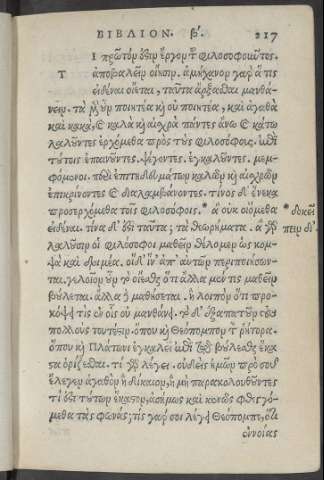 ΒΙΒΛΙΟΝ. β'. 217
Τ Ι πρῶτόν ἐστιν ἔργον τοῦ φιλοσοφοῦντος.
ἀποβαλεῖν οἴησιν. ἀμήχανον γαρ ἅ τις
εἰδέναι οἴεται, ταῦτα ἄρξασθαι μανθά-
νειν. τὰ μὲν οὖν ποιητέα καὶ οὐ ποιητέα, καὶ ἀγαθὰ
καὶ κακὰ, καὶ καλὰ καὶ αἰσχρὰ πάντες ἄνω καὶ κάτω
λαλοῦντες ἐρχόμεθα πρὸς τοὺς φιλοσόφους. ἐπὶ
τούτοις ἐπαινοῦντες. ψέγοντες. ἐγκαλοῦντες. μεμ-
φόμενοι. περὶ ἐπιτηδευμάτων καλῶν καὶ αἰσχρῶν
ἐπικρίνοντες καὶ διαλαμβάνοντες. τίνος δ' ἕνεκα
προσερχόμεθα τοῖς φιλοσόφοις. * ἃ οὐκ οἰόμεθα * δοκεῖ
εἰδέναι. τίνα δ' ἐστὶ ταῦτα; τὰ θεωρήματα. ἃ γὰρ
λαλοῦσιν οἱ φιλόσοφοι μαθεῖν θέλομεν ὡς κομ-
ψὰ καὶ δριμέα. οἱ δ' ἵν' ἀπ' αὐτῶν περιποιήσων-
ται. γελοῖον οὖν τὸ οἴεσθαι ὅτι ἄλλα μέν τις μαθεῖν
βούλεται. ἄλλα δὲ μαθήσεται. ἢ λοιπὸν ὅτι προ-
κόψει τὶς ἐν οἷς οὐ μανθάνει. τὸ δ' ἐξαπατῶν τοὺς
πολλοὺς τοῦτέστιν. ὅπου καὶ Θεόπομπον τὸν ῥήτορα.
ὅπου καὶ Πλάτωνι ἐγκαλεῖ ἐπὶ τῷ βούλεσθαι ἕκα-
στα ὁρίζεσθαι. τί γὰρ λέγει. οὐδεὶς ἡμῶν πρὸ σοῦ
ἔλεγεν ἀγαθὸν ἢ δίκαιον, ἢ μὴ παρακολουθοῦντες
τί ἐστι τούτων ἕκαστον, ἀσήμως καὶ κενῶς φθεγγό-
μεθα τὰς φωνάς; τίς γάρ σοι λέγει Θεόπομπε, ὅτι
ἐννοίας